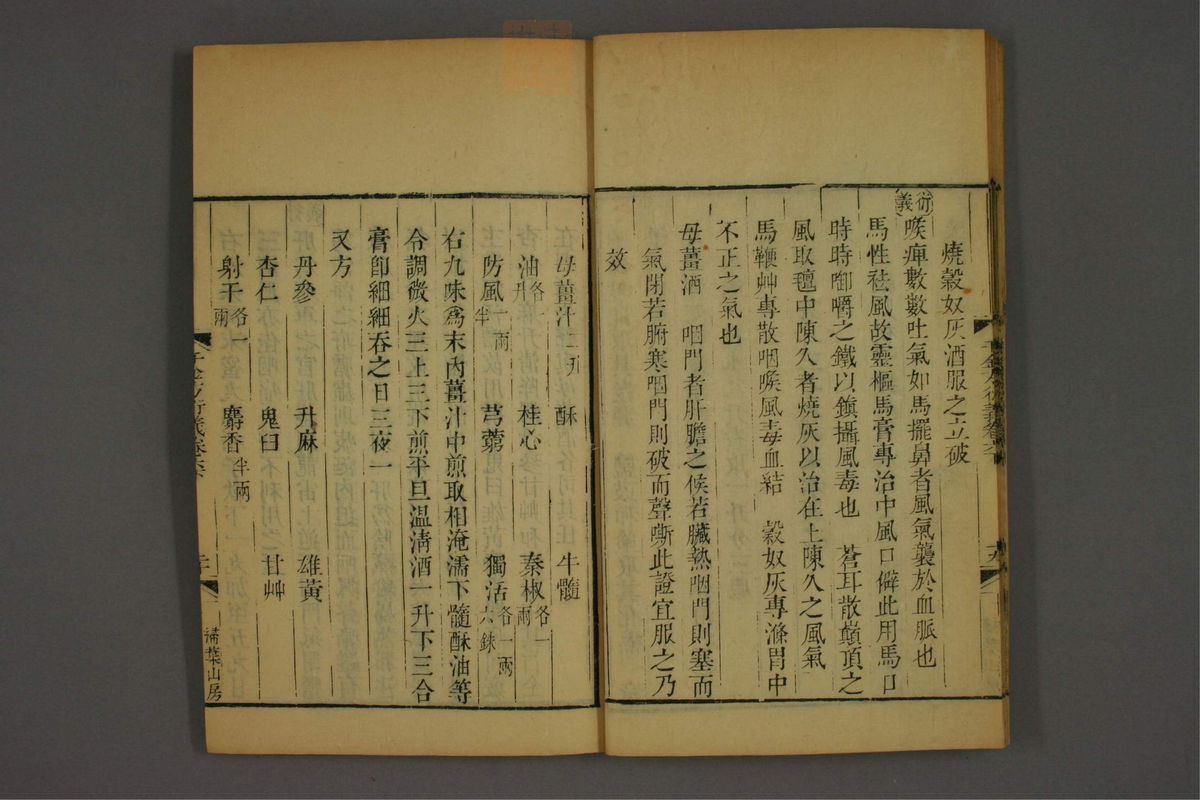 燒穀奴灰酒服之立破
衍義
喉痺數數吐氣如馬擺鼻者風氣襲於血脈也
馬性祛風故靈樞馬膏專治中風口僻此用馬口
時時啣嚼之鐵以鎮攝風毒也 蒼耳散巔頂之
風取氊中陳久者燒灰以治在上陳久之風氣
馬鞭艸專散咽喉風毒血結 穀奴灰專滌胃中
不正之氣也
母薑酒 咽門者肝膽之候若臟熱咽門則塞而
氣閉若腑寒咽門則破而聲嘶此證宜服之乃
效
母薑汁二升 酥 牛髓
油各一升 桂心 秦椒各一兩
防風一兩半 芎藭 獨活各一兩六銖
右九味為末內薑汁中煎取相淹濡下髓酥油等
令調微火三上三下煎平旦溫清酒一升下三合
膏卽細細吞之日三夜一
又方
丹參 升麻 雄黃
杏仁 鬼臼 甘艸
射干各一兩 麝香半兩
千金方衍義卷六
掃葉山房